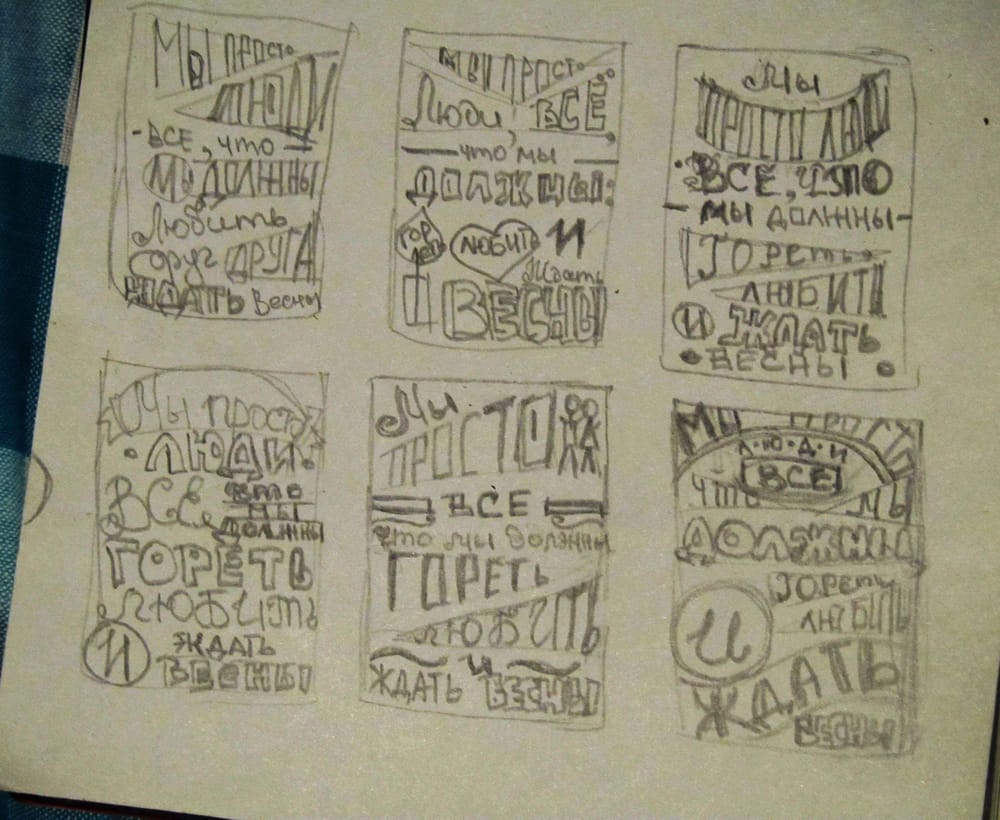 Мы просто
люди
все, что
мы должны
любить
друг друга
ждать весны
мы просто
Люди, все,
что мы
должны:
гореть
любить и
ждать
весны
Мы
просто люди
все, что
мы должны
гореть
любить
и ждать
весны
Мы просто
люди.
Все что
мы
должны
гореть
любить
и ждать
весны
Мы
просто
все
что мы должны
гореть
любить
и
ждать весны
Мы просто
л·ю·д·и
все
что мы
должны
гореть
любить
и
ждать
весны